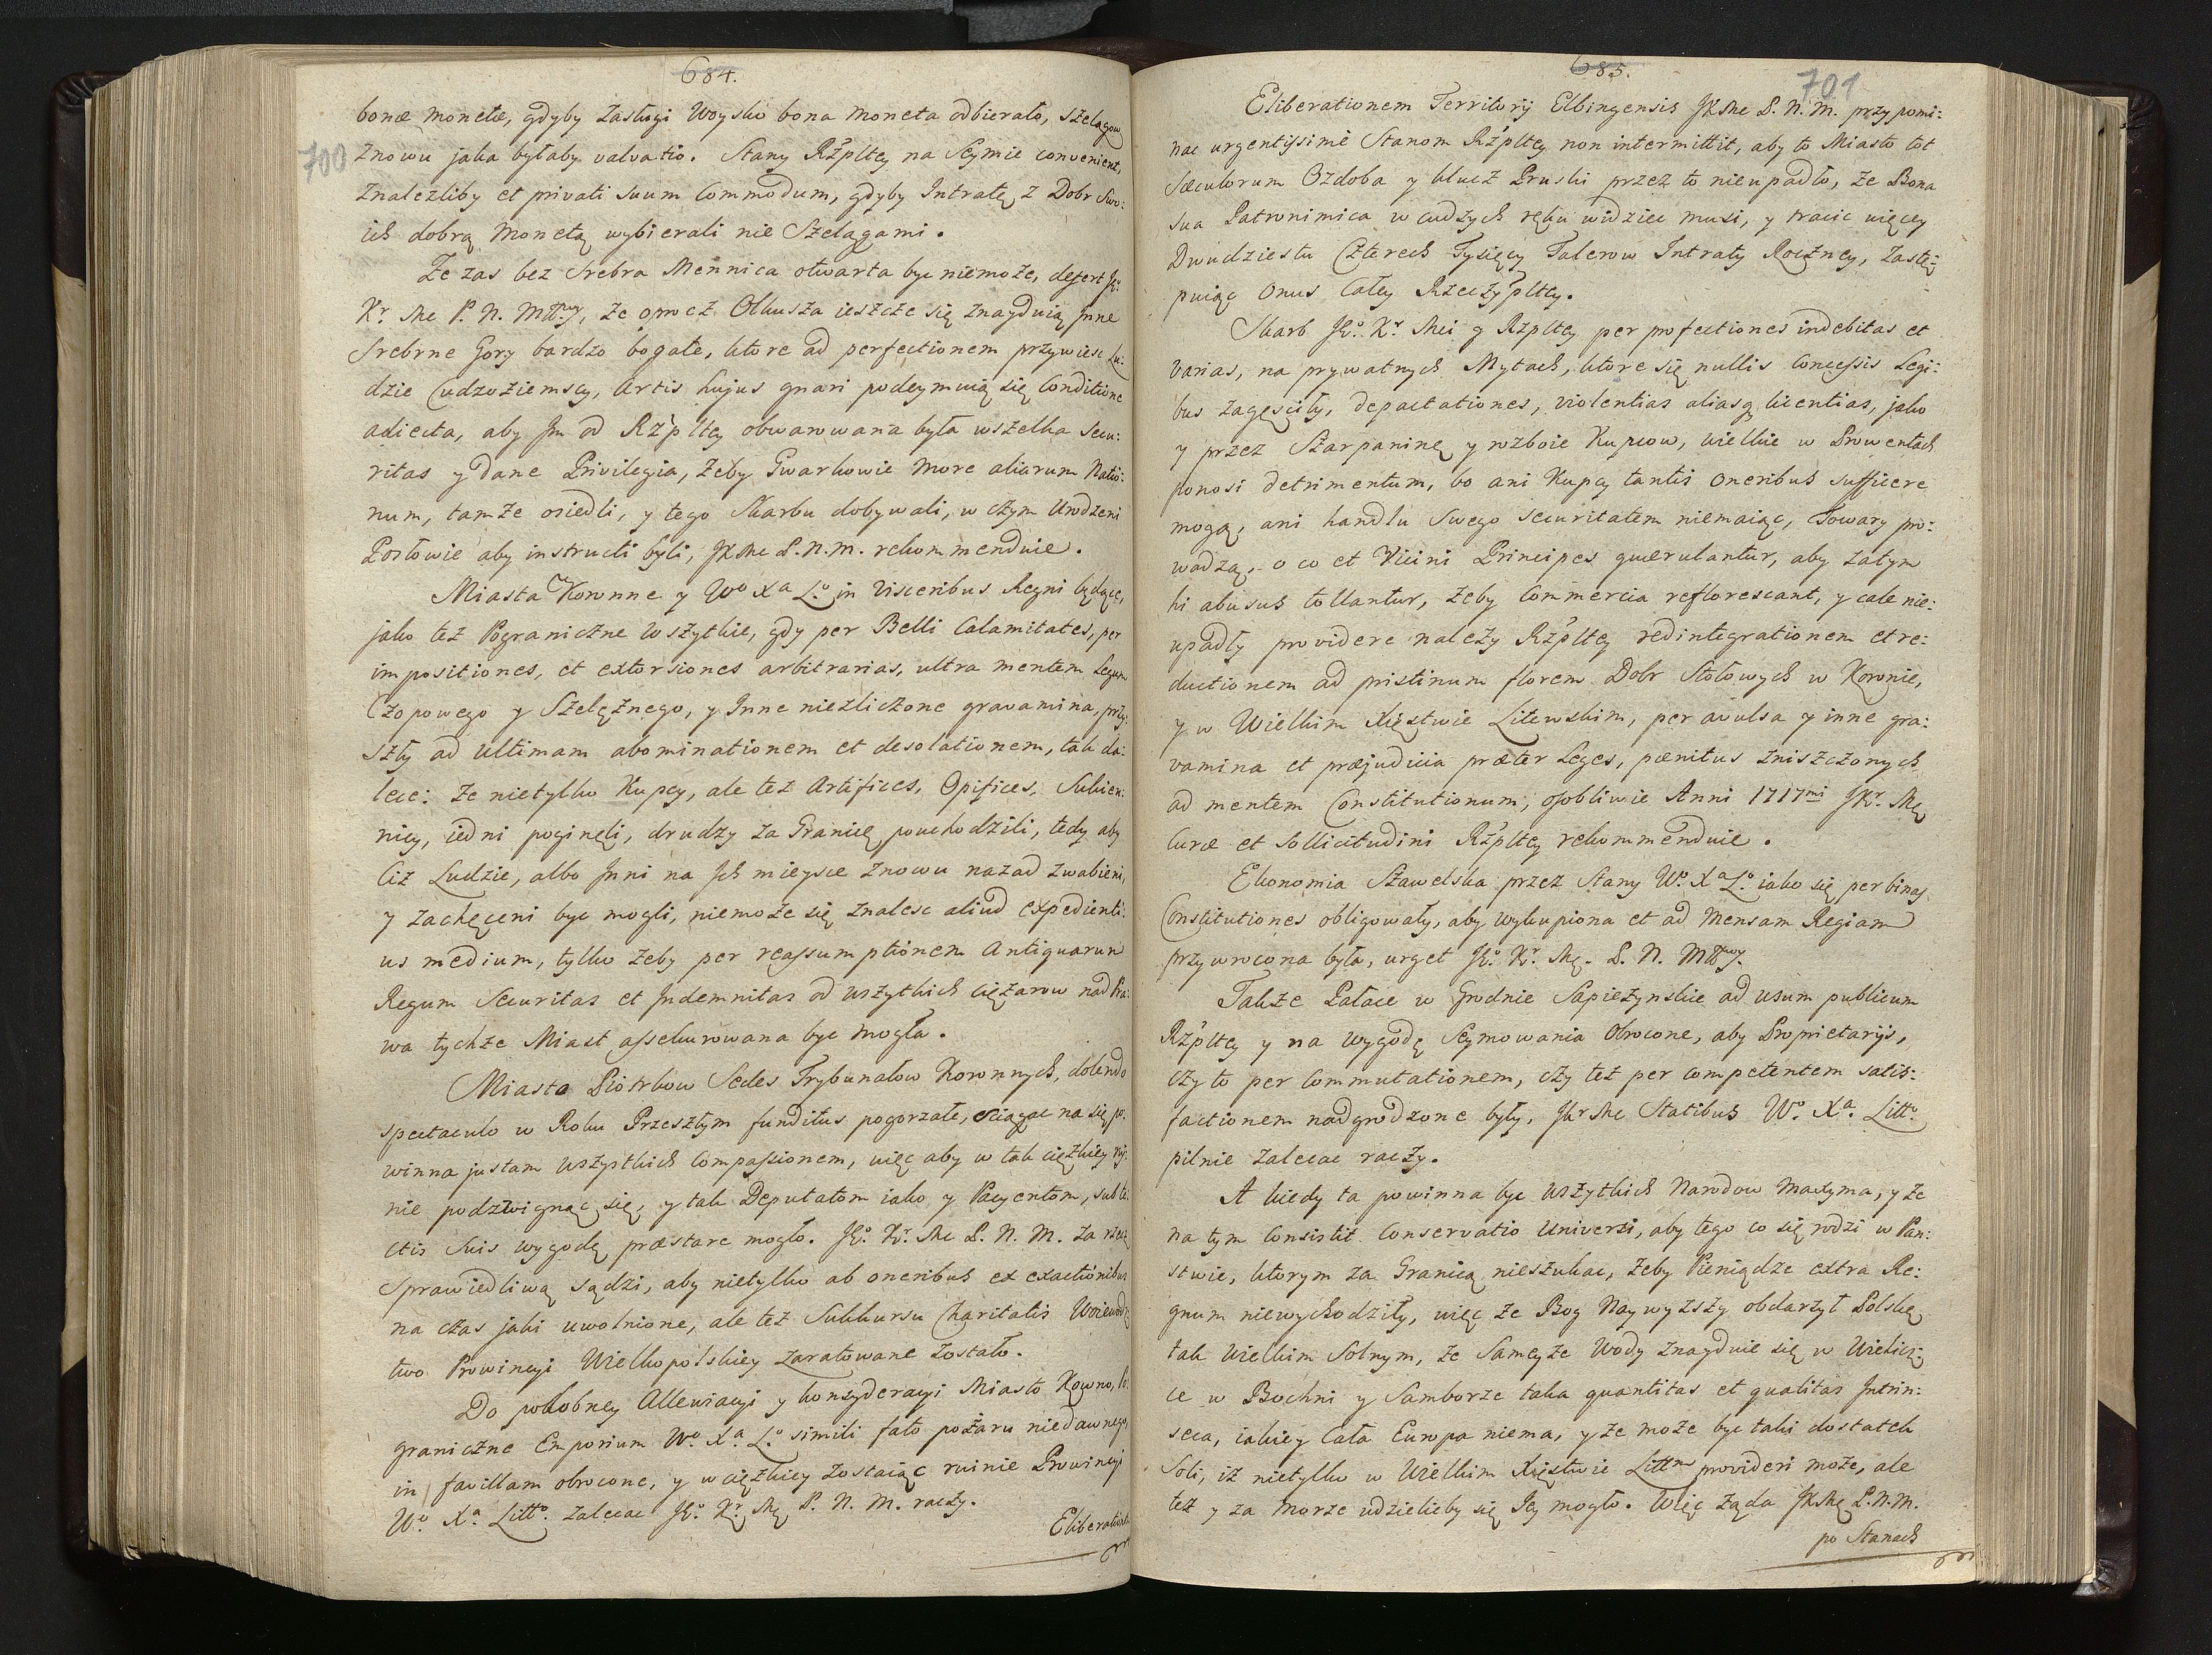 684.
700
bonæ monetæ, gdyby zasługi Woysko bona moneta odbierało, szelągow
znowu jaka byłaby valvatio. Stany Rzpltey na Seymie convenient,
znalezliby et privati suum Commodum, gdyby Intratę z Dobr Swo:
ich dobrą monetą wybierali nie Szelągami.
Ze zas bez Srebra Mennica otwarta byc niemoże, defert Jo
Kr. Mc P. N. Młłwy, że oprocz Olkusza ieszcze się znayduią Jnne
Srebrne Gory bardzo bogate, ktore ad perfectionem przywiesc Lu:
dzie Cudzoziemscy, artis hujus gnari podeymuią się Conditione
adiecta, aby Jm od Rzpltey obwarowana była wszelka Secu:
ritas y dane Privilegia, żeby Gwarkowie more aliarum Natio:
num, tamże osiedli, y tego Skarbu dobywali, w czym Urodzeni
Posłowie aby instructi byli, JKMc P.N.M. rekommenduie.
Miasta Koronne y Wo Xa Lo in Visceribus Regni będące,
jako też Pograniczne wszytkie, gdy per Belli Calamitates, per
impositiones, et extorsiones arbitrarias, ultra mentem Legum
Czopowego y Szelężnego, y Jnne niezliczone gravamina, przy:
szły ad ultimam abominationem et desolationem, tak da:
lece: że nietylko Kupcy, ale też Artifices, Opifices, Sukien:
nicy, iedni poginęli, drudzy za Granicę pouchodzili, tedy aby
Ciż Ludzie, albo Jnni na Jch mieysce znowu nazad zwabieni,
y zachęceni byc mogli, niemoże się znalesc aliud expedienti:
us medium, tylko żeby per reassumptionem Antiquarum
Regum Securitas et Jndemnitas od wszytkich ciężarow nad Pra:
wa tychże Miast assekurowana byc mogła.
Miasto Piotrkow Sedes Trybunałow Koronnych, dolendo
spectaculo w Roku Przeszłym funditus pogorzałe, sciągac na się po:
winna justam wszystkich Compassionem, więc aby w tak ciężkiey ru:
nie podzwignąc się, y tak Deputatom iako y Pacyentom, sub te:
ctis suis wygodę præstare mogło. Jo. Kr. Mc P. N. M. za rzecz
Sprawiedliwą sądzi, aby nietylko ab oneribus ex exactionibus
na czas jaki uwolnione, ale też Sukkursu Charitatis Woiewodz
two Prowincyi Wielkopolskiey zaratowane zostało.
Do podobney Allewiacyi y konsyderacyi Miasto Kowno, Po:
graniczne Emporium Wo. Xa. Lo. simili fato pożaru niedawnego,
in favillam obrocone, y w ciężkiey zostaiąc ruinie Prowincyi
Wo. Xa. Litto. zalecac Jo. Kr. Mc P. N. M. raczy.
Eliberationem
685.
701
Eliberationem Territorij Elbingensis JKMc P. N. M. przypomi:
nac urgentissimè Stanom Rzpltey non intermittit, aby to Miasto tot
Sæculorum Ozdoba y klucz Pruski przez to nieupadło, że Bona
sua Patronimica w cudzych ręku widziec musi, y tracic więcey
Dwudziestu Czterech Tysięcy Talerow Intraty Roczney, zastę:
puiąc Onus Całey Rzeczypltey.
Skarb Jo. Kr. Mci y Rzpltey per profectiones indebitas et
varias, na prywatnych Mytach, ktore się nullis Concessis Legi:
bus zagęsciły, depactationes, violentias aliasq. licentias, jako
y przez Szarpaninę y rozboie Kupcow, wielkie w Prowentach
ponosi detrimentum, bo ani Kupcy tantis oneribus sufficere
mogą, ani handlu swego securitatem niemaiąc, Towary pro:
wadzą, o co et Vicini Principes quærulantur, aby zatym
hi abusus tollantur, żeby Commercia reflorescant, y cale nie:
upadły providere należy Rzpltey redintegrationem et re:
ductionem ad pristinum florem Dobr Stołowych w Koronie,
y w Wielkim Xięstwie Litewskim, per avulsa y inne gra:
vamina et præjudicia præter Leges, pænitus zniszczonych
ad mentem Constitutionum, osobliwie Anni 1717mi JKr. Mc
Curæ et sollicitudini Rzpltey rekommenduie.
Ekonomia Szawelska przez Stany Wo. Xa Lo. iako się per binas
Constitutiones obligowały, aby wykupiona et ad Mensam Regiam
przywrocona była, urget Jo. Kr. Mc. P. N. Młłwy.
Także Pałace w Grodnie Sapieżynskie ad usum publicum
Rzpltey y na wygodę Seymowania Obrocone, aby Proprietarijs,
czyto per Commutationem, czy też per competentem satis:
factionem nadgrodzone były, JKrMc Statibus Wo. Xa. Litto.
pilnie zalecac raczy.
A kiedy ta powinna byc wszytkich Narodow maxyma, y że
na tym Consistit Conservatio Universi, aby tego co się rodzi w Pan:
stwie, ktorym za Granicą nieszukac, żeby Pieniądze extra Re:
gnum niewychodziły, więc że Bog Naywyzszy obdarzył Polskę
tak wielkim Solnym, że Sameyże Wody znayduie się w Wielicz:
ce w Bochni y Samborze taka quantitas et qualitas Jntrin:
seca, iakiey Cała Europa niema, y że może byc taki dostatek
Soli, iż nietylko w Wielkim Xięstwie Littm provideri może, ale
też y za morze udzielicby się Jey mogło. Więc żąda JKMc P.N.M.
po Stanach